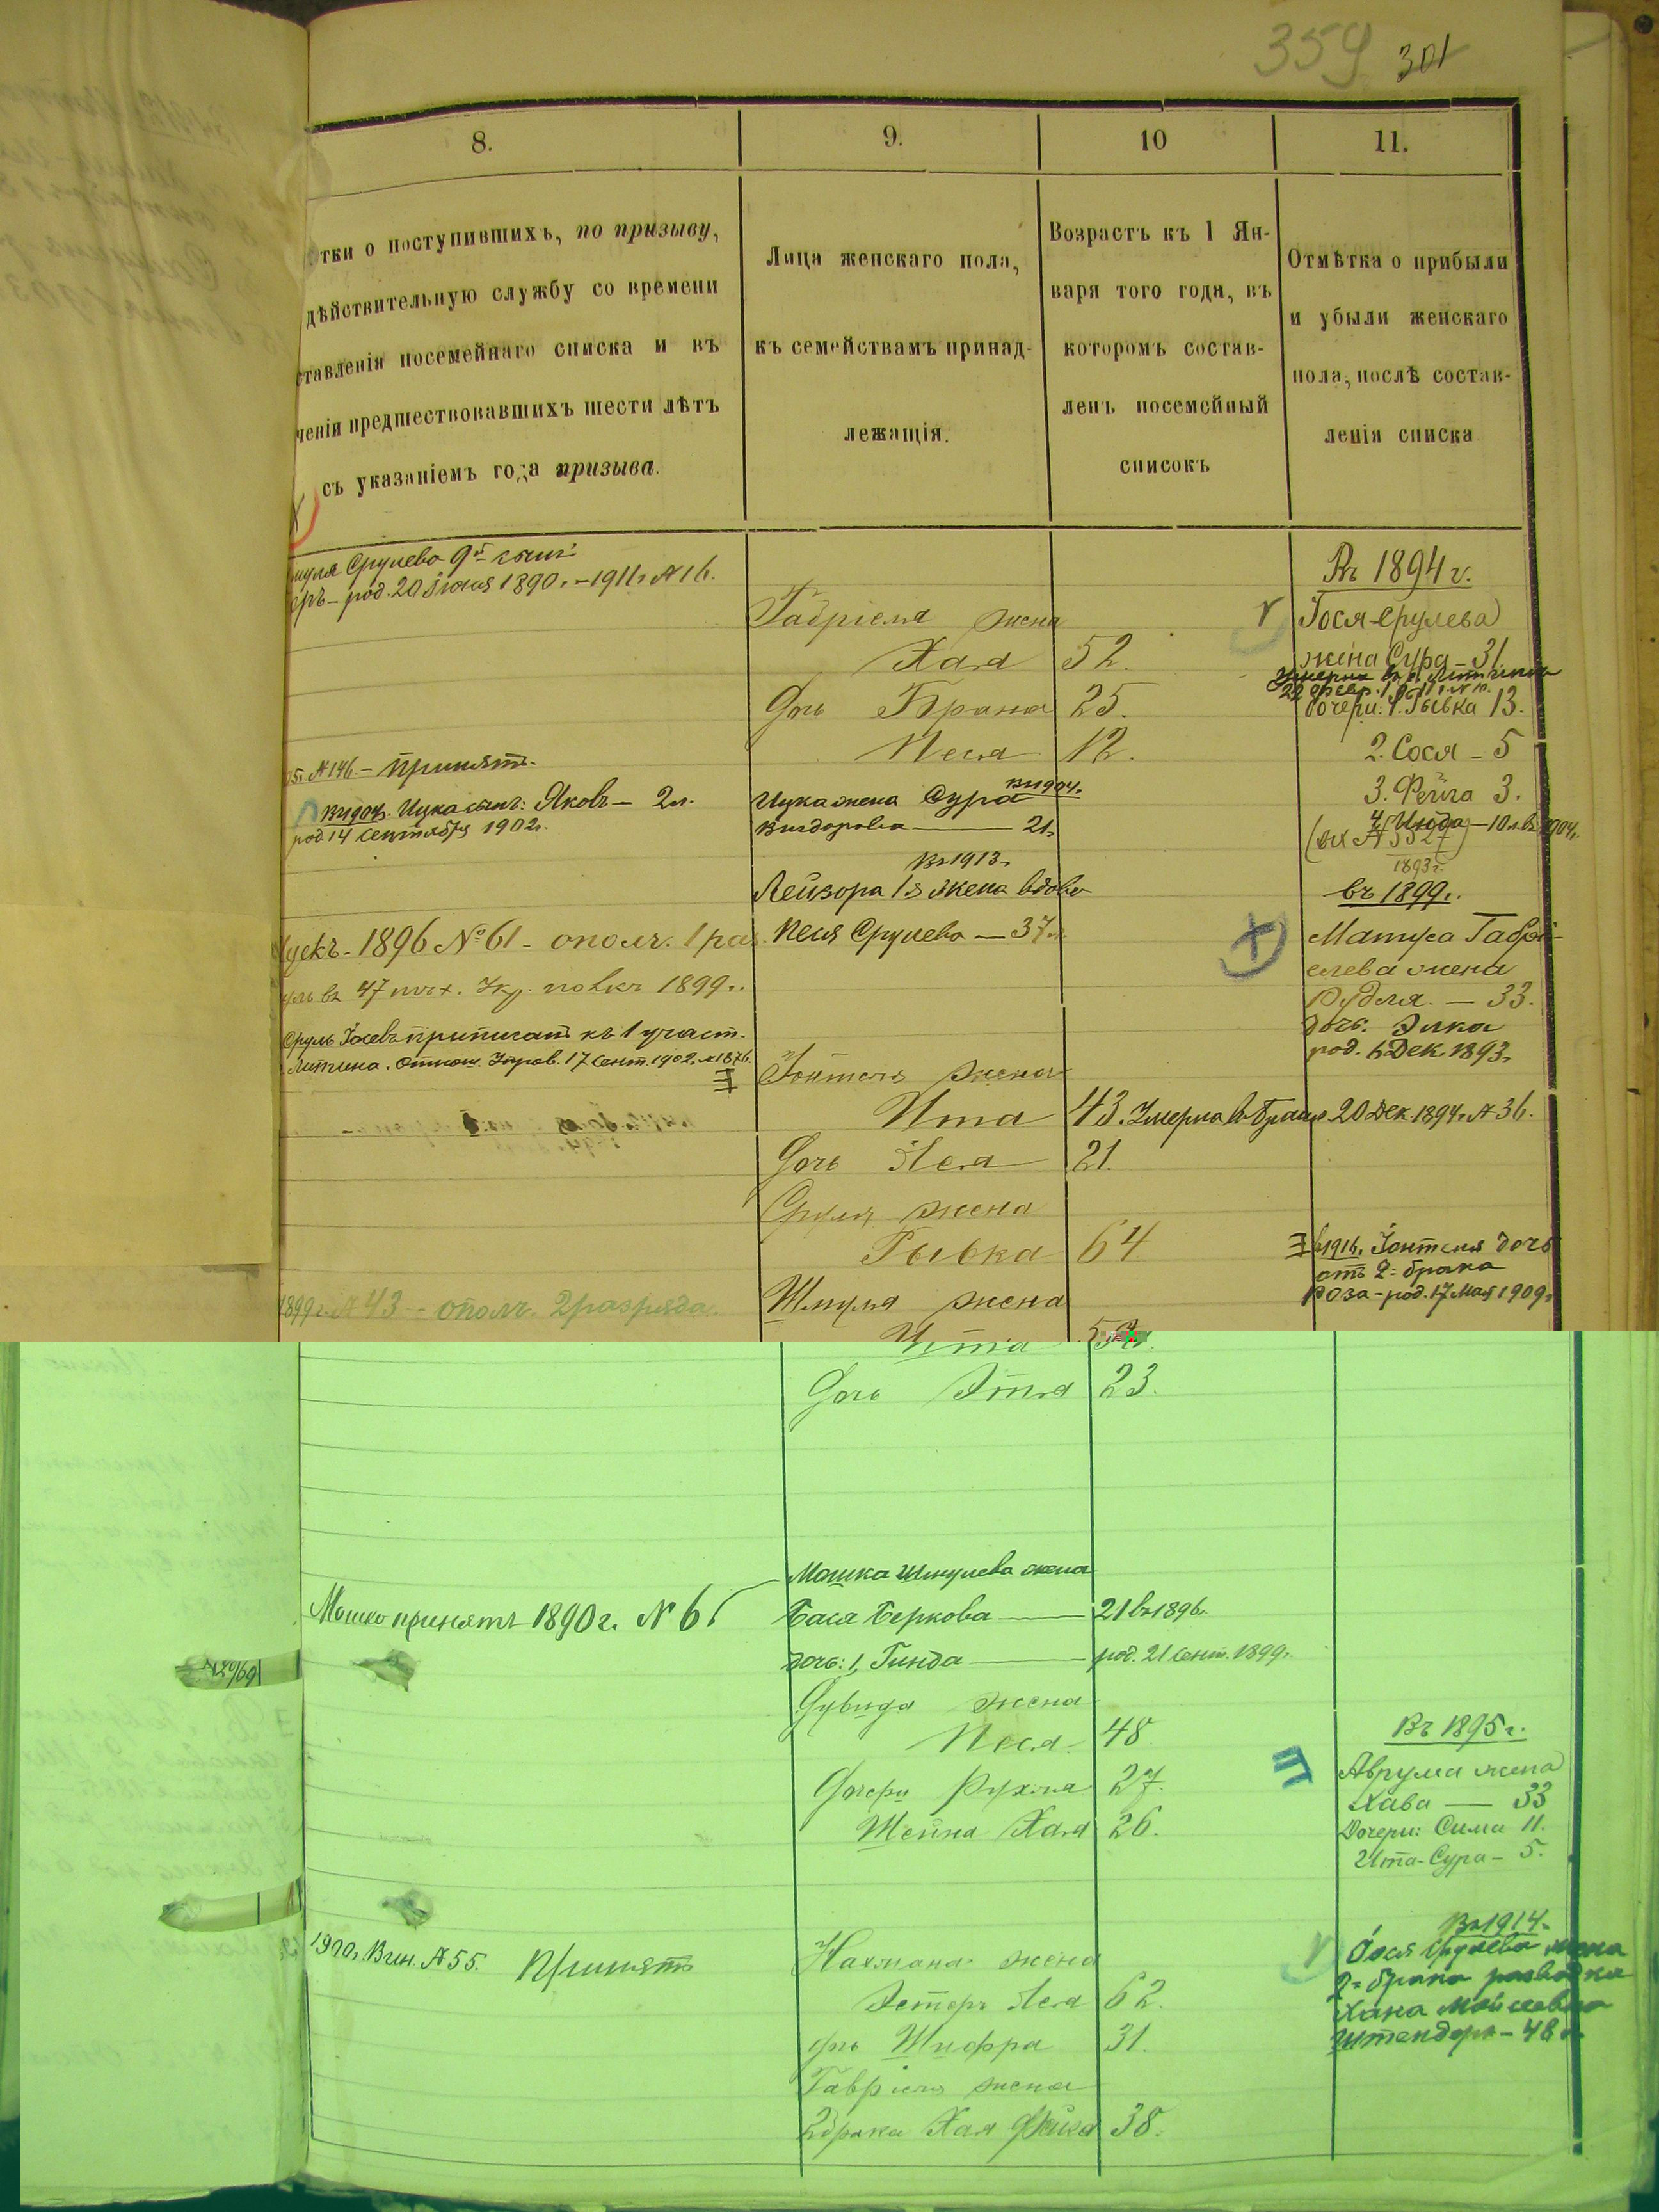 359 301
8. 9. 10 11.
тки о поступившихъ, по призыву,
дѣйствительную службу со времени
ставленія посемейнаго списка и въ
ченіи предшествовавшихъ шести лѣтъ
съ указаніемъ года призыва.
Лица женскаго пола,
къ семействамъ принад-
лежащія.
Возрастъ къ 1 Ян-
варя того года, въ
которомъ состав-
ленъ посемейный
списокъ
Отмѣтка о прибыли
и убыли женскаго
пола, послѣ состав-
ленія списка
муля Срулева 9й сынъ
род. 20 Іюля 1890 г. – 1911 г. № 16.
№ 146. – принятъ.
Въ 1904 г. Ицка сынъ: Яковъ – 2 л.
род. 14 Сентября 1902 г.
1896 № 61 – ополч. 1 раз.
въ 47 пѣх. Укр. полкъ 1899 г.
Сруль приписанъ къ 1 участ.
Литина. Отнош. Управ. 17 Сент. 1902 г. № 1876
1899 г. № 43 – ополч. 2 разряда.
Мошко принятъ 1890 г. № 65
1900 г. Вин. № 55. Принятъ
Габріеля жена
Хая 52.
Дочь Брана 25.
Песя 12.
Въ 1904 г.
Ицка жена Сура
21
Въ 1913 г.
Лейзора 1я жена вдова
Песя Срулева – 37 л.
Іойтеля жена
Ита 43. Умерла въ 20 Дек. 1894 г. № 36.
Дочь Лея 21.
Сруля жена
Рывка 64
Шмуля жена
Ита
Дочь Этля 23.
Мошка Шмулева жена
Бася Беркова – 21 въ 1896 г.
дочь: 1, Гинда – род. 21 Сент. 1899 г.
Дувида жена
Песя 48
Дочери Рухля 27.
Шейна Хая 26.
Нахмана жена
Эстеръ Лея 62.
дочь Шифра 31.
Гавріеля жена
2 брака Хая Фейга 38.
Въ 1894 г.
Іося Срулева
жена Сура – 31.
Умерла въ г. Литинѣ
22 февр.
Дочери: 1. Рывка 13.
2. Сося – 5
3. Фейга 3.
4. – 10 л. въ 1904 г.
(вх № 5527)
1893 г.
въ 1899 г.
Матуса Габрі-
елева жена
Рудля. – 33.
дочь. Элка
род. 6 Дек. 1893 г.
въ 1916 г. Іойтеля дочь
отъ 2го брака
Роза – род. 17 Мая 1909 г.
Въ 1895 г.
Аврума жена
Хава – 33
Дочери: Сима 11.
Ита-Сура – 5.
Въ 1914 г.
Іося Срулева жена
2го брака разводка
Хана Мойсеевна
Штендеръ – 48 л.